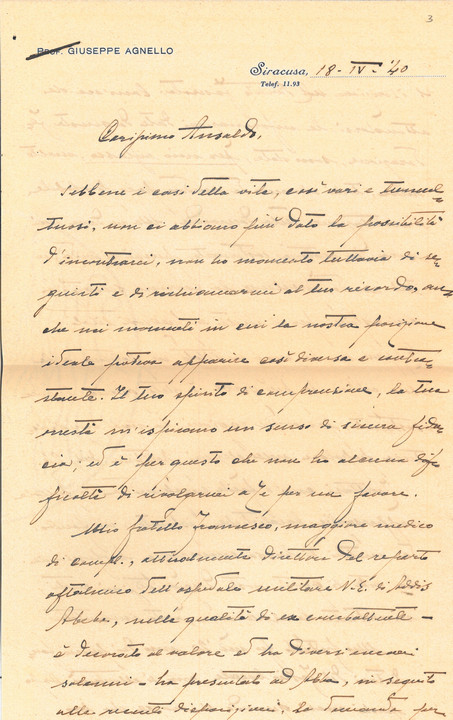 3
Prof. GIUSEPPE AGNELLO
Siracusa, 18-IV-40
Telef. 11.93
Carissimo Ansaldo,
Sebbene i casi della vita, così vari e tumul-
tuosi, non ci abbiano più dato la possibilità
d'incontrarci, non ho mancato tuttavia di se-
guirti e di richiamarmi al tuo ricordo, an-
che nei momenti in cui la nostra posizione
ideale poteva apparire così diversa e contra-
stante. Il tuo spirito di comprensione, la tua
onestà m'ispirano un senso di sicura fidu-
cia; ed è per questo che non ho alcuna dif-
ficoltà di rivolgermi a Te per un favore.
Mio fratello Francesco, maggiore medico
di compl., attualmente direttore del reparto
oftalmico dell'ospedale militare V.E. di Addis
Abeba, nella qualità di ex combattente -
è decorato al valore ed ha diversi
- ha presentato ad Abba, in seguito
alle recenti disposizioni, la domanda per